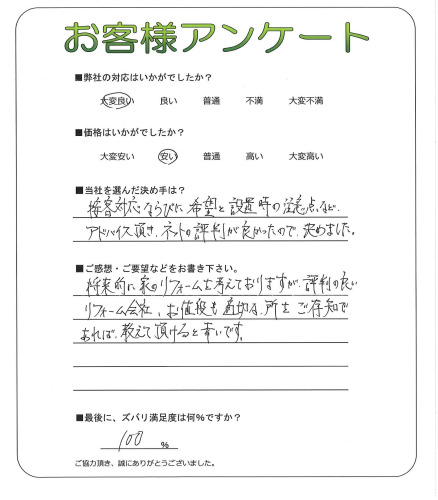 お客様アンケート
■弊社の対応はいかがでしたか？
大変良い 良い 普通 不満 大変不満
■価格はいかがでしたか？
大変安い 安い 普通 高い 大変高い
■当社を選んだ決め手は？
接客対応ならびに、希望と設置時の注意点など、
アドバイス頂き、ネットの評判が良かったので、決めました。
■ご感想・ご要望などをお書き下さい。
将来的に家のリフォームを考えておりますが、評判の良い
リフォーム会社、お値段も適切な所をご存知で
あれば、教えて頂けると幸いです。
■最後に、ズバリ満足度は何％ですか？
100 ％
ご協力頂き、誠にありがとうございました。